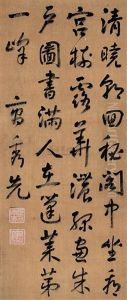 清曉朝回秘閣中坐看
宮樹露華濃綠窗朱
戶圖書滿人在蓬萊第
一峰
秀先